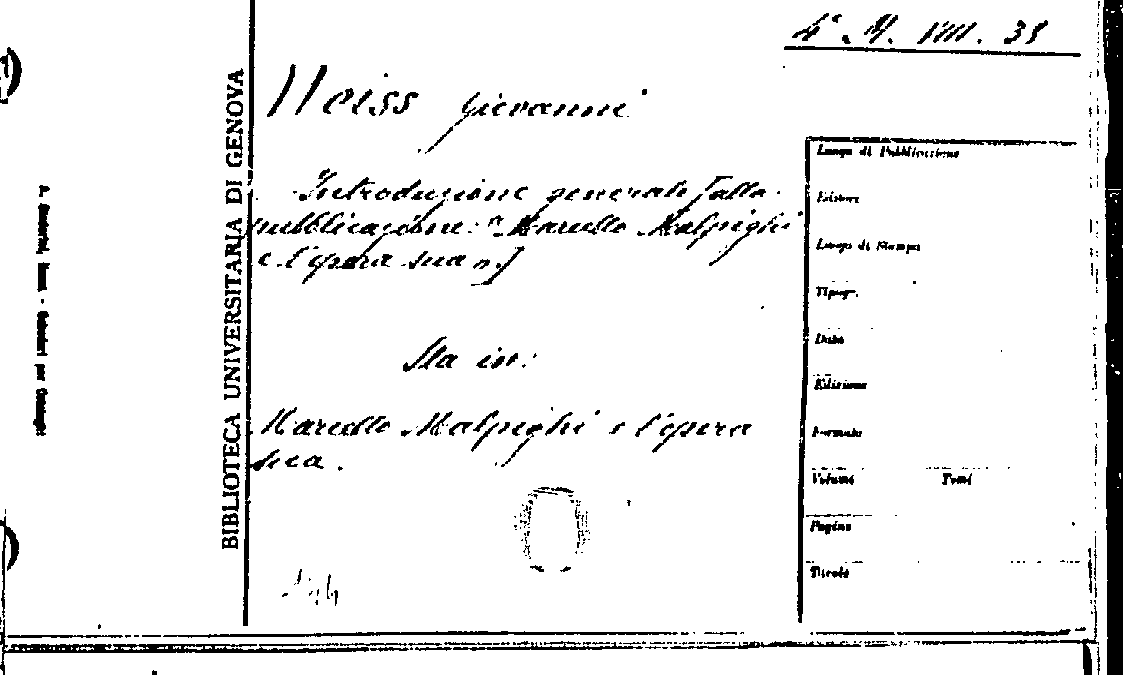 4° M. VIII. 33
Weiss Giovanni
Introduzione generale [alla
pubblicazione: "Marcello Malpighi
e l'opera sua".]
Sta in:
Marcello Malpighi e l'opera
sua.
BIBLIOTECA UNIVERSITARIA DI GENOVA
Luogo di Pubblicazione
Editore
Luogo di Stampa
Tipogr.
Data
Edizione
Formato
Volume Tomi
Pagine
Tavole